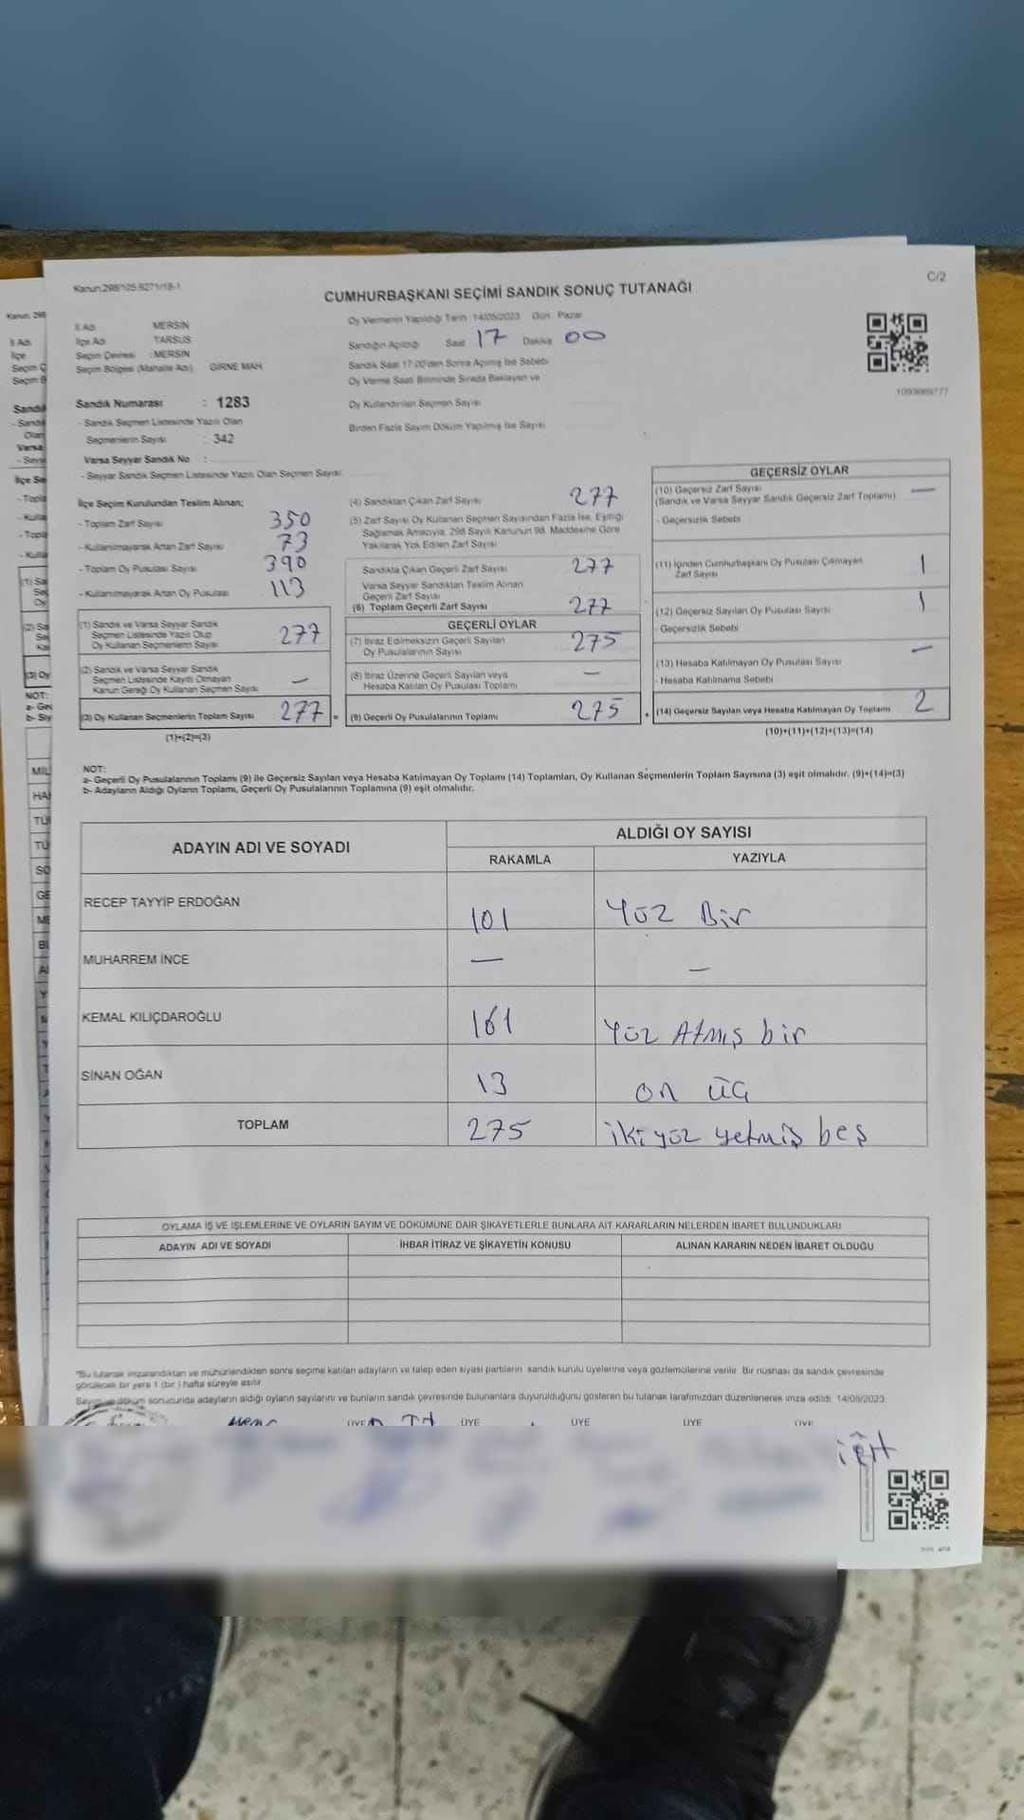 C/2
CUMHURBAŞKANI SEÇİMİ SANDIK SONUÇ TUTANAĞI
İl Adı MERSİN
İlçe Adı TARSUS
Seçim Çevresi : MERSİN
Seçim Bölgesi (Mahalle Adı) GİRNE MAH.
Sandık Numarası : 1283
- Sandık Seçmen Listesinde Yazılı Olan
Seçmenlerin Sayısı : 342
Varsa Seyyar Sandık No :
- Seyyar Sandık Seçmen Listesinde Yazılı Olan Seçmen Sayısı
Oy Vermenin Yapıldığı Tarih : 14/05/2023 Gün : Pazar
Sandığın Açıldığı Saat 17 Dakika 00
Sandık Saat 17:00'den Sonra Açılmış İse Sebebi
Oy Verme Saati Bitiminde Sırada Bekleyen ve
Oy Kullandırılan Seçmen Sayısı
Birden Fazla Sayım Döküm Yapılmış İse Sayısı
İlçe Seçim Kurulundan Teslim Alınan;
- Toplam Zarf Sayısı 350
- Kullanılmayarak Artan Zarf Sayısı 73
- Toplam Oy Pusulası Sayısı 390
- Kullanılmayarak Artan Oy Pusulası 113
(1) Sandık ve Varsa Seyyar Sandık
Seçmen Listesinde Yazılı Olup
Oy Kullanan Seçmenlerin Sayısı 277
(2) Sandık ve Varsa Seyyar Sandık
Seçmen Listesinde Kayıtlı Olmayan
Kanun Gereği Oy Kullanan Seçmen Sayısı —
(3) Oy Kullanan Seçmenlerin Toplam Sayısı 277 =
(1)+(2)=(3)
(4) Sandıktan Çıkan Zarf Sayısı 277
(5) Zarf Sayısı Oy Kullanan Seçmen Sayısından Fazla İse, Eşitliği
Sağlamak Amacıyla, 298 Sayılı Kanunun 98. Maddesine Göre
Yakılarak Yok Edilen Zarf Sayısı
Sandıkta Çıkan Geçerli Zarf Sayısı 277
Varsa Seyyar Sandıktan Teslim Alınan
Geçerli Zarf Sayısı
(6) Toplam Geçerli Zarf Sayısı 277
GEÇERLİ OYLAR
(7) İtiraz Edilmeksizin Geçerli Sayılan
Oy Pusulalarının Sayısı 275
(8) İtiraz Üzerine Geçerli Sayılan veya
Hesaba Katılan Oy Pusulası Toplamı —
(9) Geçerli Oy Pusulalarının Toplamı 275 +
GEÇERSİZ OYLAR
(10) Geçersiz Zarf Sayısı —
(Sandık ve Varsa Seyyar Sandık Geçersiz Zarf Toplamı)
- Geçersizlik Sebebi
(11) İçinden Cumhurbaşkanı Oy Pusulası Çıkmayan
Zarf Sayısı 1
(12) Geçersiz Sayılan Oy Pusulası Sayısı 1
- Geçersizlik Sebebi
(13) Hesaba Katılmayan Oy Pusulası Sayısı —
- Hesaba Katılmama Sebebi
(14) Geçersiz Sayılan veya Hesaba Katılmayan Oy Toplamı 2
(10)+(11)+(12)+(13)=(14)
NOT:
a- Geçerli Oy Pusulalarının Toplamı (9) ile Geçersiz Sayılan veya Hesaba Katılmayan Oy Toplamı (14) Toplamları, Oy Kullanan Seçmenlerin Toplam Sayısına (3) eşit olmalıdır. (9)+(14)=(3)
b- Adayların Aldığı Oyların Toplamı, Geçerli Oy Pusulalarının Toplamına (9) eşit olmalıdır.
ADAYIN ADI VE SOYADI ALDIĞI OY SAYISI
RAKAMLA YAZIYLA
RECEP TAYYİP ERDOĞAN 101 Yüz Bir
MUHARREM İNCE — —
KEMAL KILIÇDAROĞLU 161 Yüz Atmış bir
SİNAN OĞAN 13 on üç
TOPLAM 275 iki yüz yetmiş beş
OYLAMA İŞ VE İŞLEMLERİNE VE OYLARIN SAYIM VE DÖKÜMÜNE DAİR ŞİKAYETLERLE BUNLARA AİT KARARLARIN NELERDEN İBARET BULUNDUKLARI
ADAYIN ADI VE SOYADI İHBAR İTİRAZ VE ŞİKAYETİN KONUSU ALINAN KARARIN NEDEN İBARET OLDUĞU
"Bu tutanak imzalandıktan ve mühürlendikten sonra seçime katılan adayların ve talep eden siyasi partilerin sandık kurulu üyelerine veya gözlemcilerine verilir. Bir nüshası da sandık çevresinde
görülecek bir yere 1 (bir) hafta süreyle asılır.
döküm sonucunda adayların aldığı oyların sayılarını ve bunların sandık çevresinde bulunanlara duyurulduğunu gösteren bu tutanak tarafımızdan düzenlenerek imza edildi. 14/05/2023
ÜYE ÜYE ÜYE ÜYE